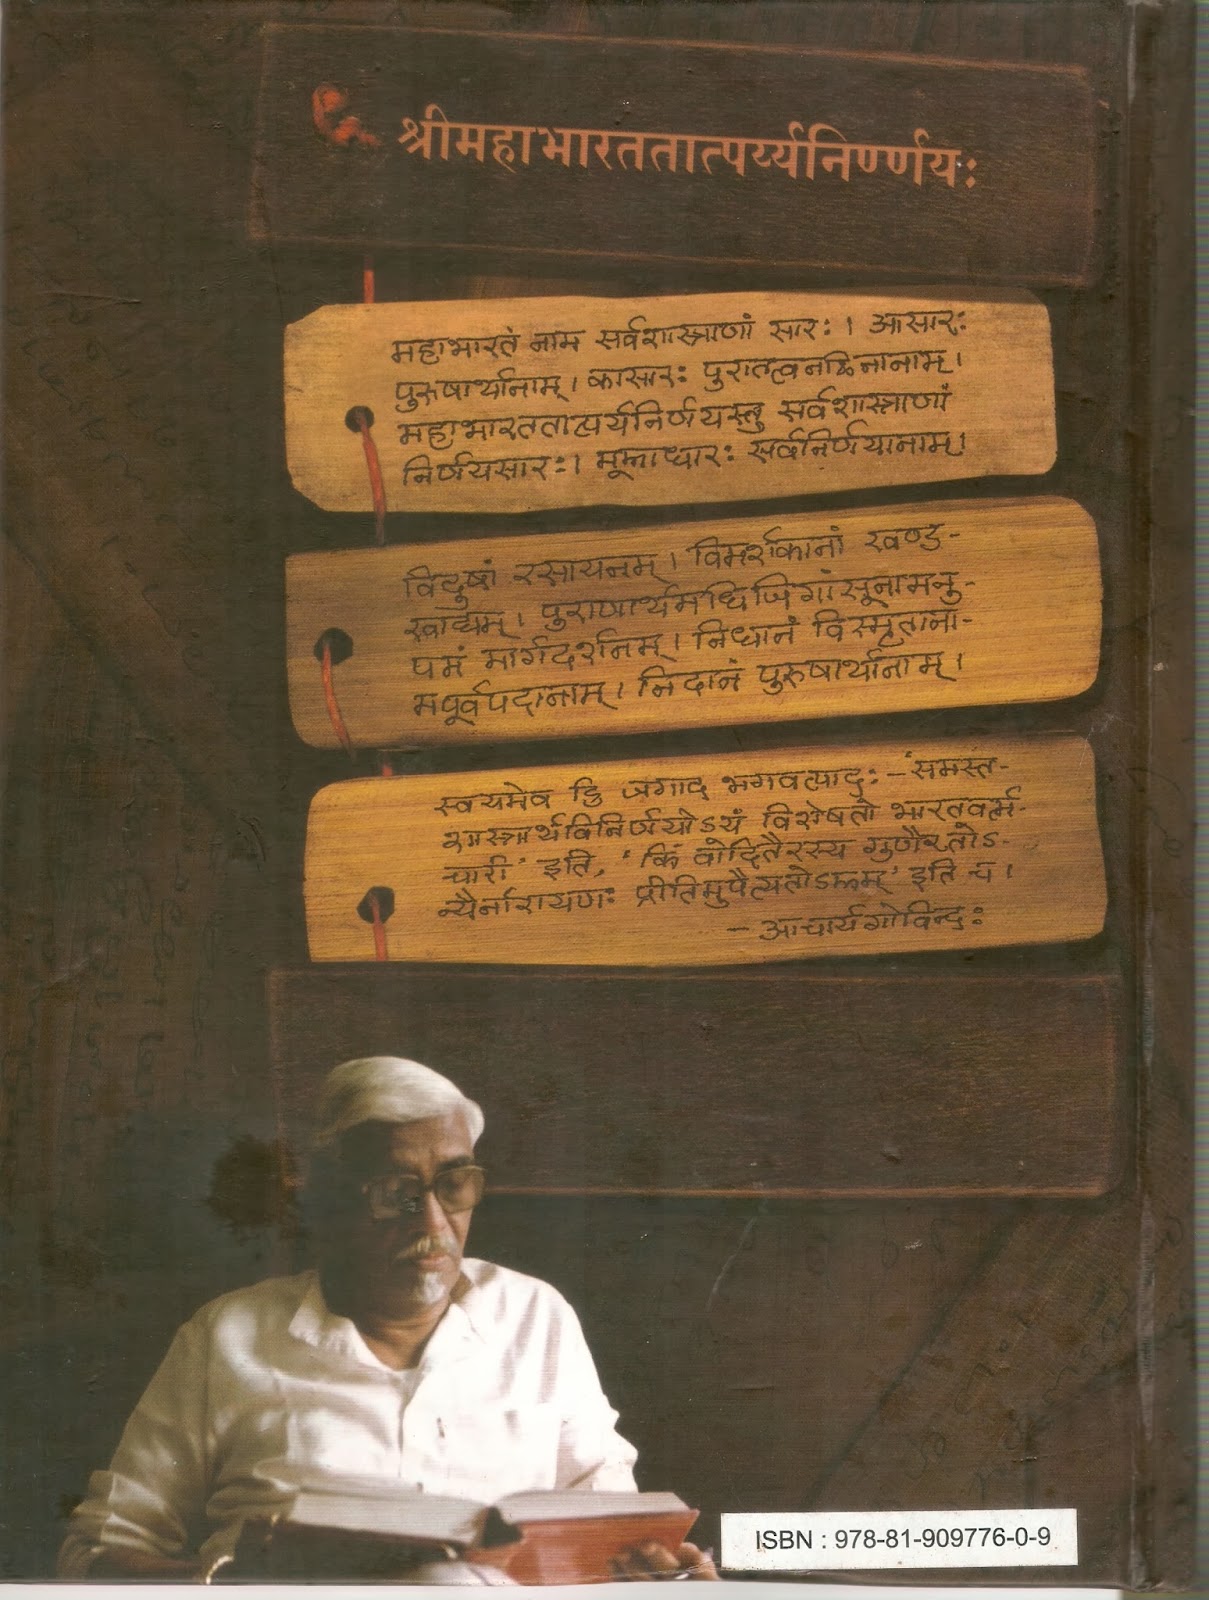 श्रीमहाभारततात्पर्य्यनिर्ण्णयः
महाभारतं नाम सर्वशास्त्राणां सारः । आसारः
पुरुषार्थानाम् । कासारः पुरातत्वनलिनानाम् ।
महाभारततात्पर्यनिर्णयस्तु सर्वशास्त्राणां
निर्णयसारः । मूलाधारः सर्वनिर्णयानाम् ।
विदुषां रसायनम् । विमर्शकानां खण्ड-
खाद्यम् । पुराणार्थमधिजिगांसूनामनु-
पमं मार्गदर्शनम् । निधानं विस्मृताना-
मपूर्वपदानाम् । निदानं पुरुषार्थानाम् ।
स्वयमेव हि जगाद भगवत्पादः - 'समस्त-
शास्त्रार्थविनिर्णयोऽयं विशेषतो भारतवर्त्म-
चारी' इति, 'किं वोदितैरस्य गुणैस्ततोऽ-
न्यैर्नारायणः प्रीतिमुपैत्यतोऽलम्' इति च ।
- आचार्यगोविन्दः
ISBN : 978-81-909776-0-9